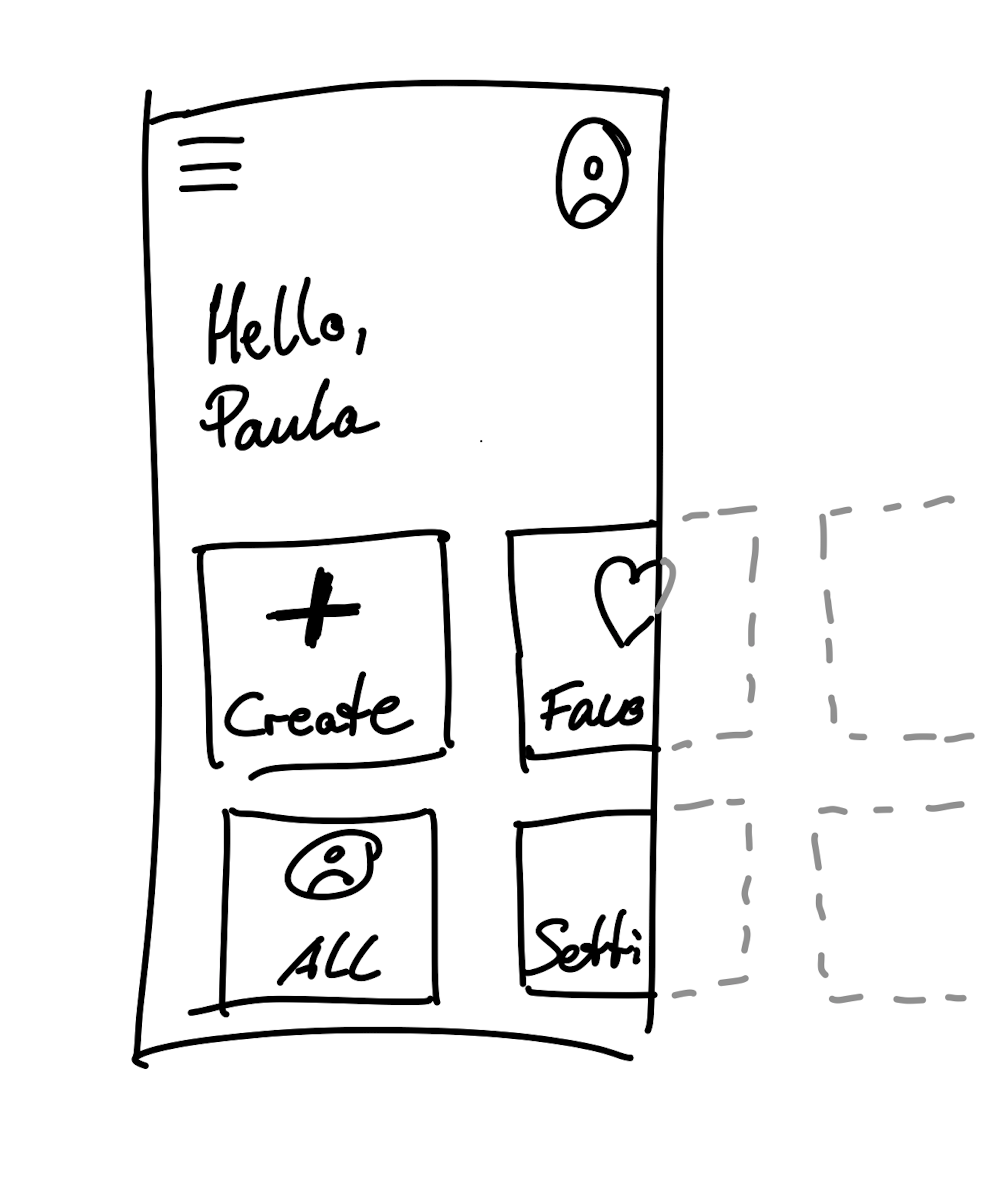 Hello,
Paula
Create
Favo
ALL
Setti